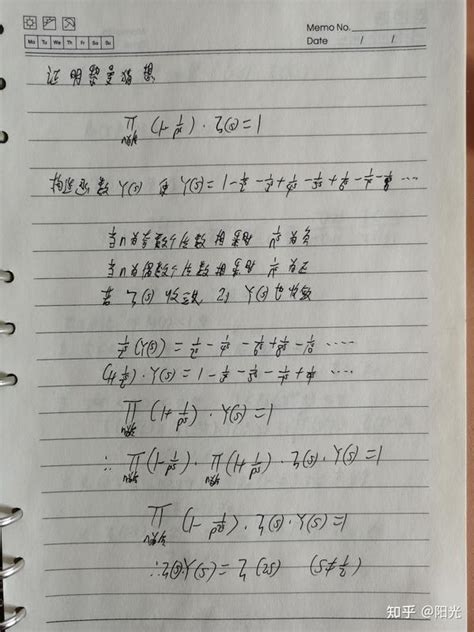 Memo No.
Mo Tu We Th Fr Sa Su
Date / /
证明黎曼猜想
∏(1-1/pˢ)·ζ(s)=1
构造函数Y(s) Y(s)=1-1/2ˢ-1/3ˢ+1/4ˢ-1/5ˢ+1/6ˢ-1/7ˢ-1/8ˢ ...
若n为奇数个质数相乘时 为负
若n为偶数个质数相乘时 为正
若 ζ(s) 收敛 则 Y(s)也收敛
1/2ˢ(Y(s))=1/2ˢ-1/4ˢ-1/6ˢ+1/8ˢ-1/10ˢ ....
(1+1/2ˢ)·Y(s)=1-1/3ˢ-1/5ˢ-1/7ˢ+1/9ˢ ...
∏(1+1/pˢ)·Y(s)=1
∴∏(1-1/pˢ)·∏(1+1/pˢ)·ζ(s)·Y(s)=1
∏(1-1/p²ˢ)·ζ(s)·Y(s)=1
∴ζ(s)·Y(s)=ζ(2s) (s≠1/2)
知乎 @阳光